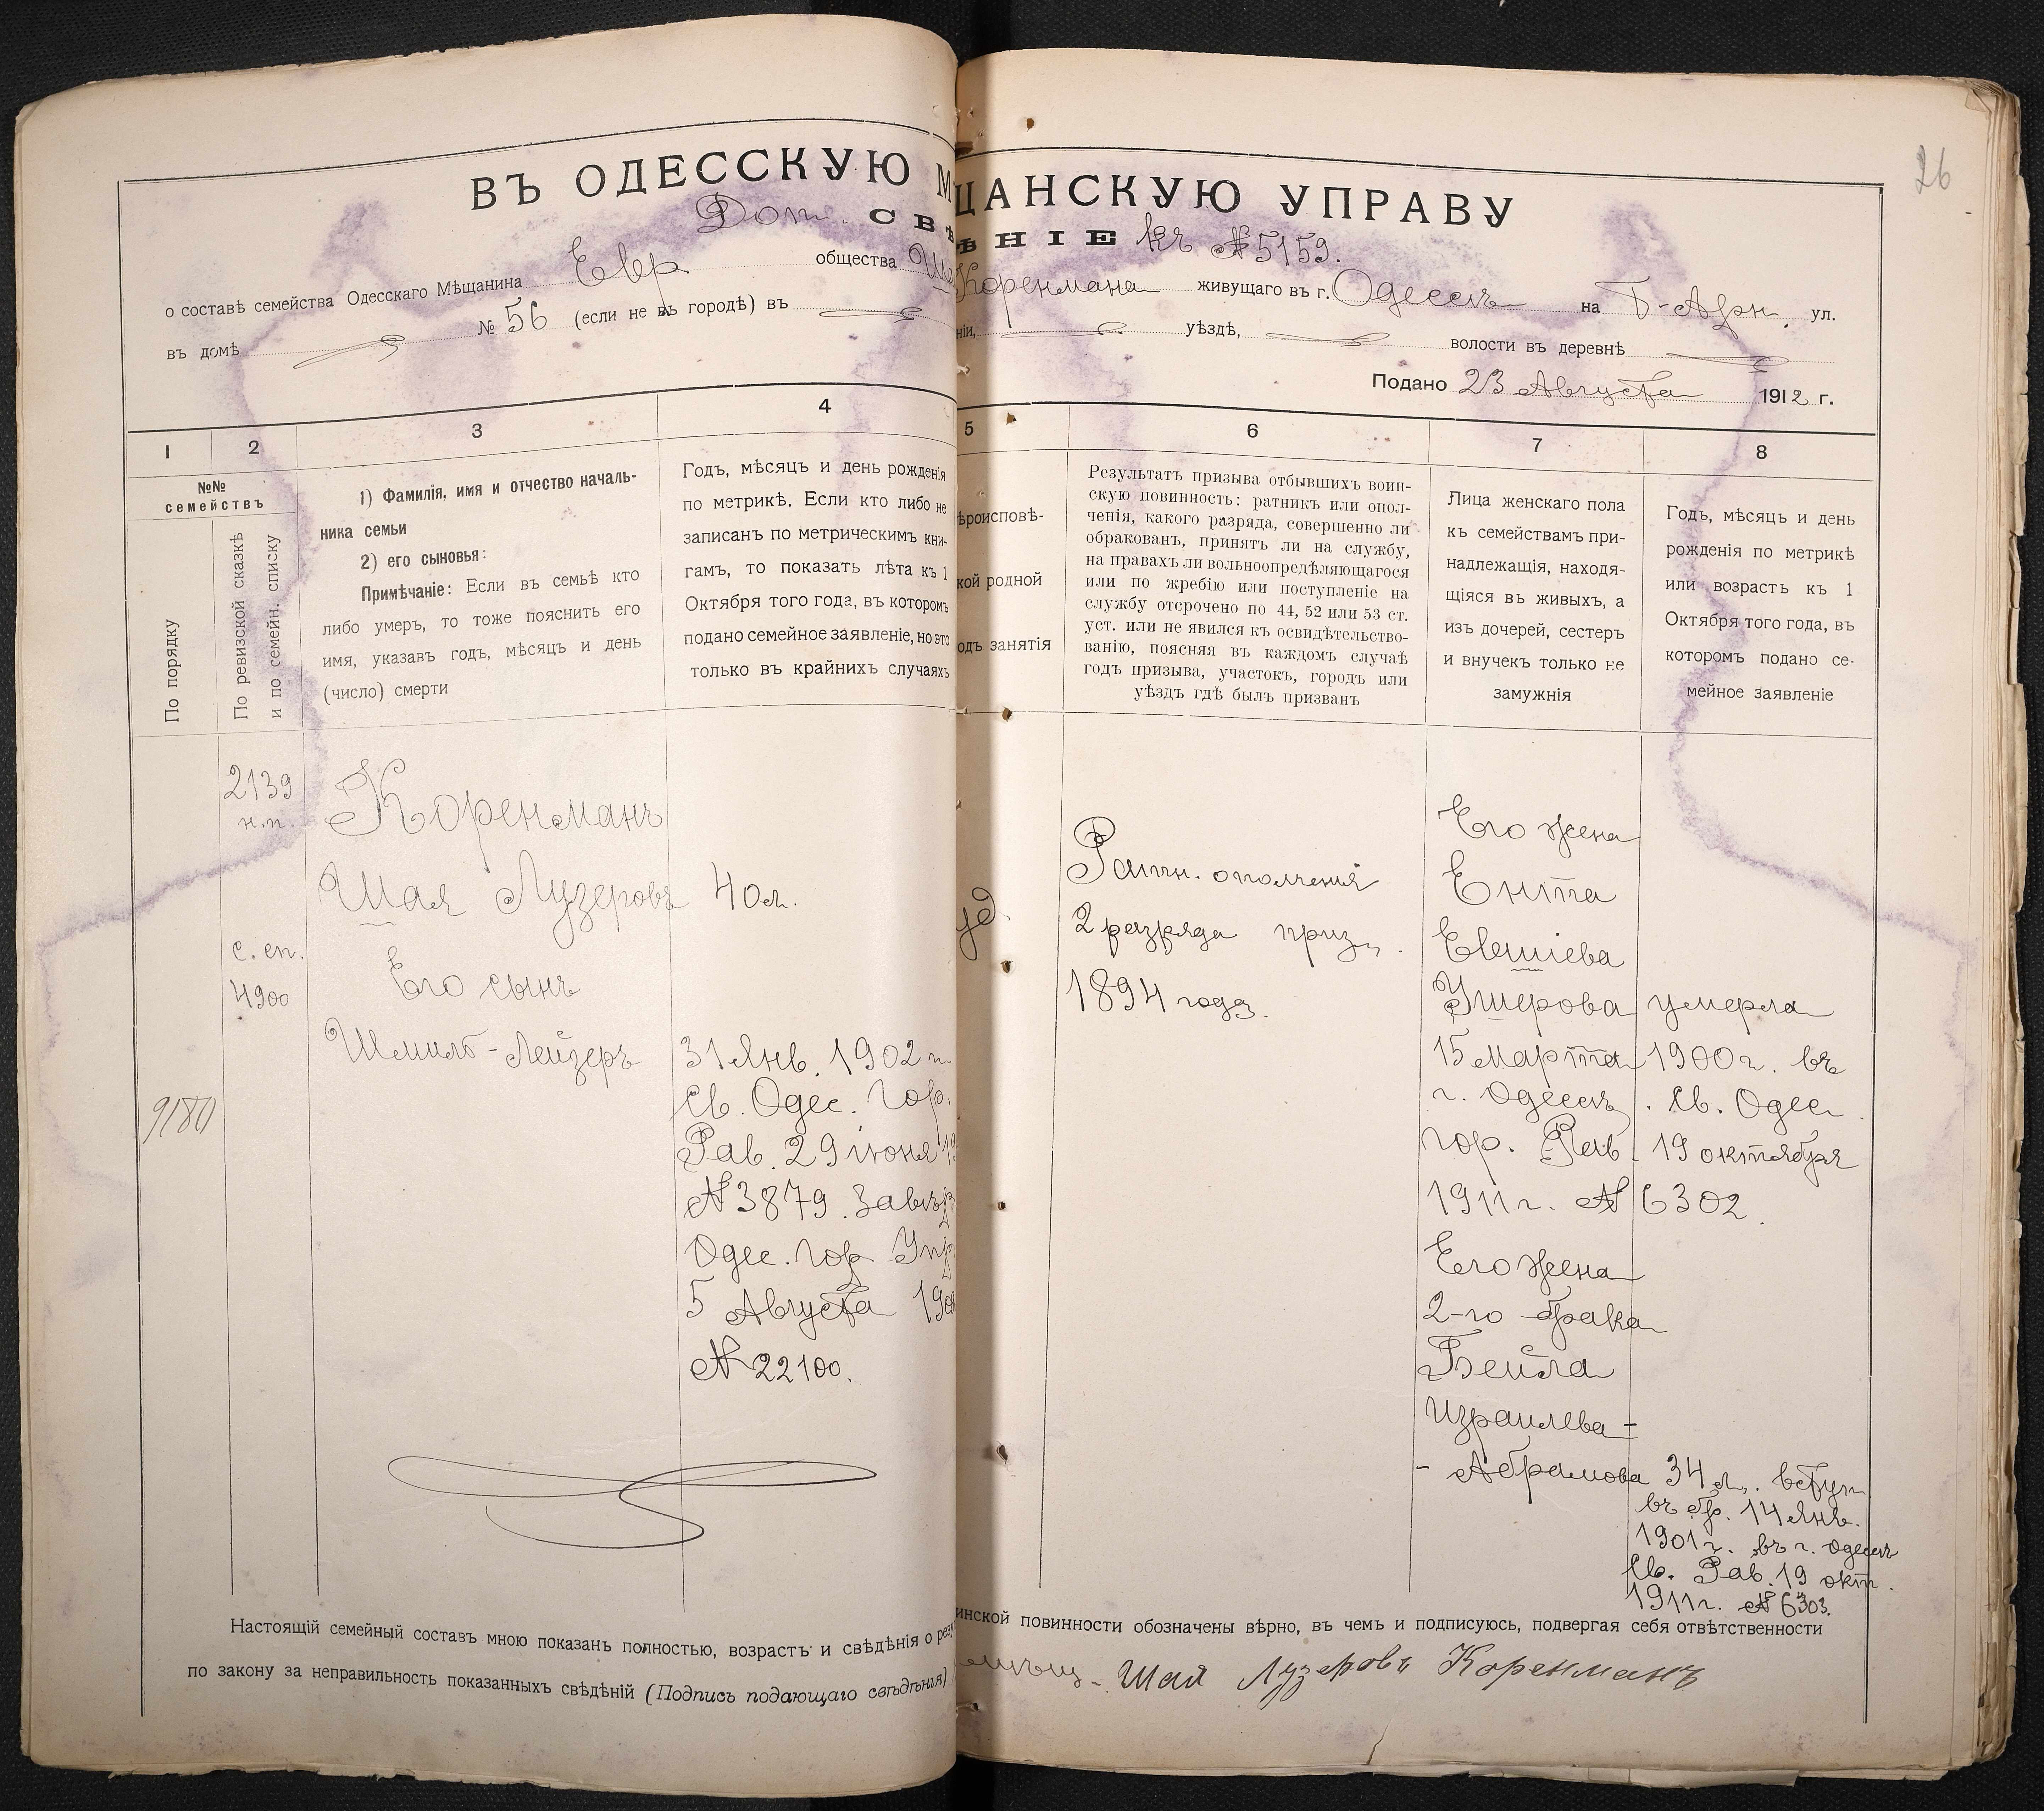 26
ВЪ ОДЕССКУЮ М ЩАНСКУЮ УПРАВУ
Доп. СВѢ ѢНІЕ къ №5159.
о составѣ семейства Одесскаго Мѣщанина Евр общества Коренмана живущаго въ г. Одессѣ на Б-Арн. ул.
въ домѣ № 56 (если не въ городѣ) въ ніи, уѣздѣ, волости въ деревнѣ
Подано 23 Августа 1912 г.
1 2 3 4 5 6 7 8
№№
семействъ
По порядку
По ревизской сказкѣ
и по семейн. списку
1) Фамилія, имя и отчество началь-
ника семьи
2) его сыновья:
Примѣчаніе: Если въ семьѣ кто
либо умеръ, то тоже пояснить его
имя, указавъ годъ, мѣсяцъ и день
(число) смерти
Годъ, мѣсяцъ и день рожденія
по метрикѣ. Если кто либо не
записанъ по метрическимъ кни-
гамъ, то показать лѣта къ 1
Октября того года, въ которомъ
подано семейное заявленіе, но это
только въ крайнихъ случаяхъ
ѣроисповѣ-
кой родной
одъ занятія
Результатъ призыва отбывшихъ воин-
скую повинность: ратникъ или опол-
ченія, какого разряда, совершенно ли
обракованъ, принятъ ли на службу,
на правахъ ли вольноопредѣляющагося
или по жребію или поступленіе на
службу отсрочено по 44, 52 или 53 ст.
уст. или не явился къ освидѣтельство-
ванію, поясняя въ каждомъ случаѣ
годъ призыва, участокъ, городъ или
уѣздъ гдѣ былъ призванъ
Лица женскаго пола
къ семействамъ при-
надлежащія, находя-
щіяся въ живыхъ, а
изъ дочерей, сестеръ
и внучекъ только не
замужнія
Годъ, мѣсяцъ и день
рожденія по метрикѣ
или возрастъ къ 1
Октября того года, въ
которомъ подано се-
мейное заявленіе
9180
2139
н.п.
с. сп.
4900
Коренманъ
Шая Лузеровъ
Его сынъ
Шмиль-Лейзеръ
40 л.
31 Янв. 1902 г.
Св. Одес. Гор.
Рав. 29 іюня 19
№ 3879. Завѣр
Одес. Гор Упр
5 Августа 190
№ 22100.
уд.
Ратн. ополченія
2 разряда приз.
1894 года.
Его жена
Ента
Евшіева
Ушерова умерла
15 марта 1900 г. въ
г. Одессѣ. Св. Одес.
гор. Рав. 19 октября
1911 г. № 6302.
Его жена
2-го брака
Бейла
Израилева-
- Абрамова 34 л. вступ.
въ бр. 14 Янв.
1901 г. въ г. Одессѣ
Св. Рав. 19 окт.
1911 г. № 6303.
Настоящій семейный составъ мною показанъ полностью, возрастъ и свѣдѣнія о рез инской повинности обозначены вѣрно, въ чемъ и подписуюсь, подвергая себя отвѣтственности
по закону за неправильность показанныхъ свѣдѣній (Подпись подающаго свѣдѣнія) Шая Лузеровъ Коренманъ